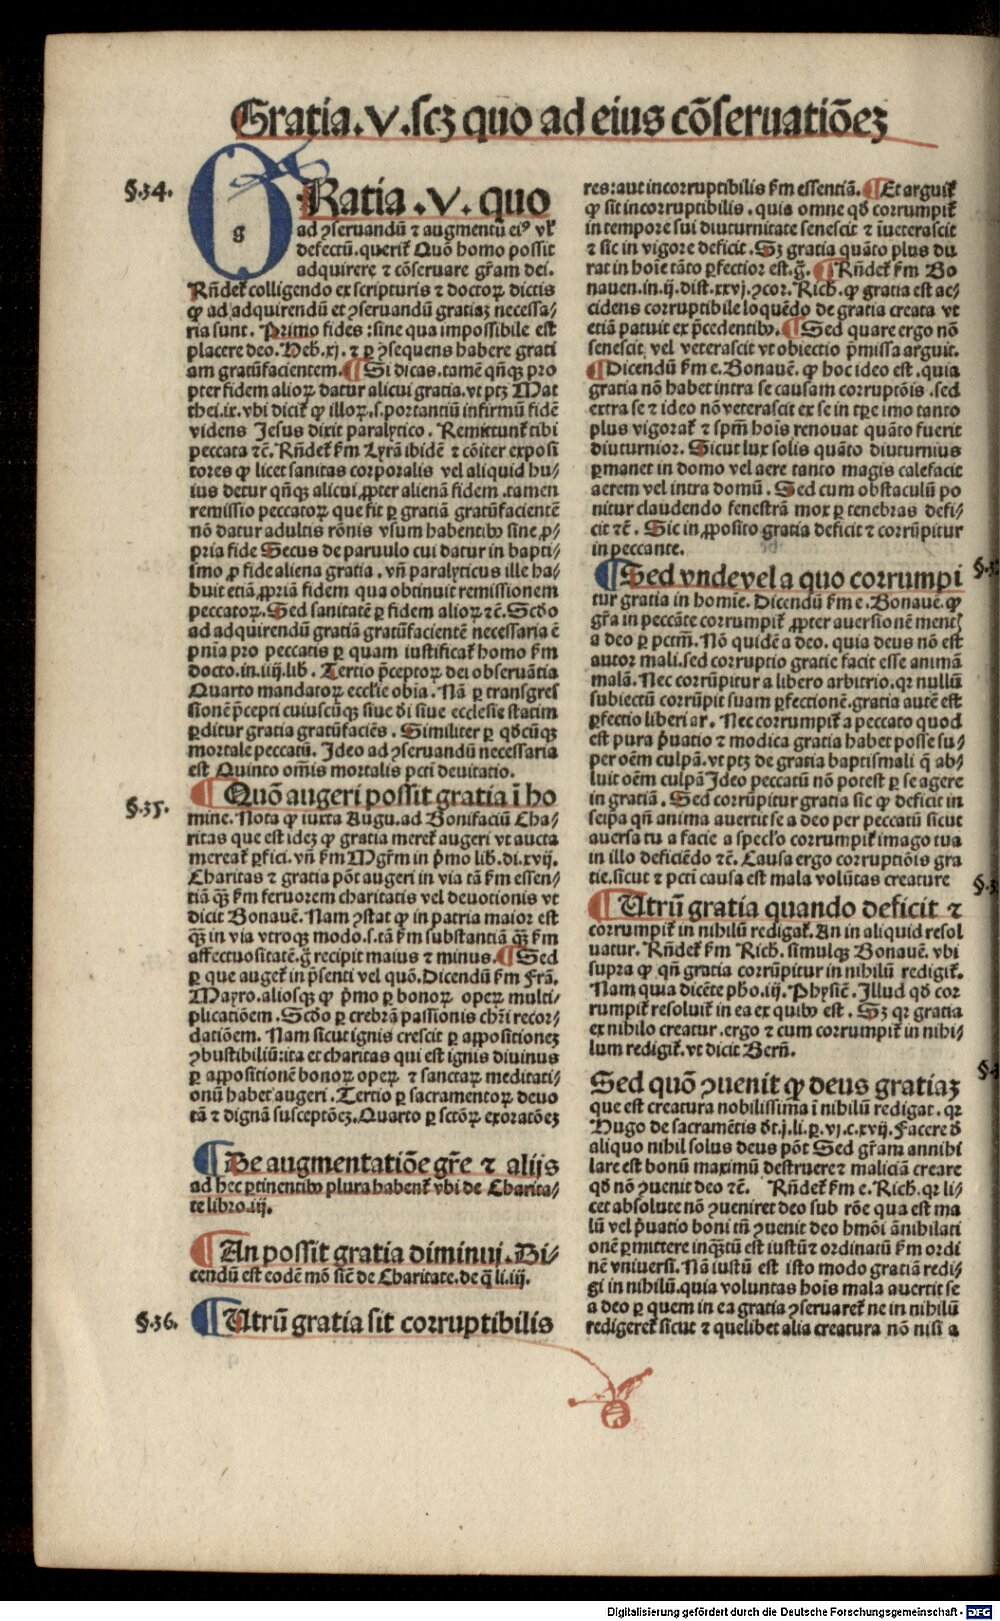 Gratia.V.scz quo ad eius cōseruatiōez
§.34.
GRatia .V. quo
g
ad ꝯseruandū ⁊ augmentū eiꝰ vł
defectū.querit᷑ Quō homo possit
adquirere ⁊ cōseruare gr̄am dei.
Rn̄det᷑ colligendo ex scripturis ⁊ doctoꝝ dictis
ꝙ ad adquirendū et ꝯseruandū gratiaz necessa⸗
ria sunt. Primo fides : sine qua impossibile est
placere deo. Heb.xj. ⁊ ꝑ ꝯsequens habere grati
am gratūfacientem. ¶Si dicas.tamē qn̄qꝫ pro
pter fidem alioꝝ datur alicui gratia.vt ptꝫ Mat
thei.ix.vbi dicit᷑ ꝙ illoꝝ.s.portantiū infirmū fidē
videns Jesus dixit paralytico. Remittunt᷑ tibi
peccata ⁊c̄. Rn̄det᷑ fm Lyrā ibidē ⁊ cōiter exposi
tores ꝙ licet sanitas corporalis vel aliquid hu⸗
ius detur qn̄qꝫ alicui ꝓpter alienā fidem .tamen
remissio peccatoꝝ que fit ꝑ gratiā gratūfacientē
nō datur adultis rōnis vsum habentibꝰ sine ꝓ⸗
pria fide Secus de paruulo cui datur in bapti⸗
smo ꝓ fide aliena gratia . vn̄ paralyticus ille ha⸗
buit etiā ꝓpriā fidem qua obtinuit remissionem
peccatoꝝ. Sed sanitatē ꝑ fidem alioꝝ ⁊c̄. Scďo
ad adquirendū gratiā gratūfacientē necessaria ē
pn̄ia pro peccatis ꝑ quam iustificat᷑ homo fm
docto.in.iiij.lib. Tertio p̄ceptoꝝ dei obseruātia
Quarto mandatoꝝ eccl̄ie obīa. Nā ꝑ transgres
sionē p̄cepti cuiuscūqꝫ siue ďi siue ecclesie statim
ꝑditur gratia gratūfaciēs. Similiter ꝑ qďcūqꝫ
mortale peccatū. Ideo ad ꝯseruandū necessaria
est Quinto om̄is mortalis pcti deuitatio.
§.35.
¶Quō augeri possit gratia ī ho
mine. Nota ꝙ iuxta Augu.ad Bonifaciū Cha⸗
ritas que est idez ꝙ gratia meret᷑ augeri vt aucta
mereat᷑ ꝑfici. vn̄ fm Mgr̄m in p̄mo lib.di.xvij.
Charitas ⁊ gratia pōt augeri in via tā fm essen⸗
tiā qꝫ̄ fm feruorem charitatis vel deuotionis vt
dicit Bonauē. Nam ꝯstat ꝙ in patria maior est
qꝫ̄ in via vtroqꝫ modo.s.tā fm substantiā qꝫ̄ fm
affectuositatē.g̊ recipit maius ⁊ minus. ¶Sed
ꝑ que auget᷑ in p̄senti vel quō.Dicendū fm Frā.
Mayro.aliosqꝫ ꝙ p̄mo ꝑ bonoꝝ opeꝝ multi⸗
plicatiōem. Scďo ꝑ crebrā passionis chr̄i recor⸗
datiōem. Nam sicut ignis crescit ꝑ appositionez
ꝯbustibiliū:ita et charitas qui est ignis diuinus
ꝑ appositionē bonoꝝ opeꝝ ⁊ sanctaꝝ meditati⸗
onū habet augeri. Tertio ꝑ sacramentoꝝ deuo
tā ⁊ dignā susceptōez.Quarto ꝑ sctōꝝ exoratōez
¶De augmentatiōe gr̄e ⁊ alijs
ad hec ꝑtinentibꝰ plura habent᷑ vbi de Charita⸗
te libro.iij.
¶An possit gratia diminui.Di⸗
cendū est eodē mō sic̄ de Charitate.de q̄ li.iij.
§.36.
¶Utrū gratia sit corruptibilis
res:aut incorruptibilis fm essentiā. ¶Et arguit᷑
ꝙ sit incorruptibilis . quia omne qď corrumpit᷑
in tempore sui diuturnitate senescit ⁊ īueterascit
⁊ sic in vigore deficit. Sꝫ gratia quāto plus du
rat in hoīe tāto ꝑfectior est.g̊. ¶Rn̄det᷑ fm Bo
nauen.in.ij.dist.xxvj.ꝯcor. Rich. ꝙ gratia est ac⸗
cidens corruptibile loquēdo de gratia creata vt
etiā patuit ex p̄cedentibꝰ. ¶Sed quare ergo nō
senescit vel veterascit vt obiectio p̄missa arguit.
¶Dicendū fm e.Bonauē. ꝙ hoc ideo est .quia
gratia nō habet intra se causam corruptōis .sed
extra se ⁊ ideo nō veterascit ex se in tp̄e imo tanto
plus vigorat᷑ ⁊ spm̄ hoīs renouat quāto fuerit
diuturnior. Sicut lux solis quāto diuturnius
ꝑmanet in domo vel aere tanto magis calefacit
aerem vel intra domū . Sed cum obstaculū po
nitur claudendo fenestrā mox ꝑ tenebras defi⸗
cit ⁊c̄ . Sic in ꝓposito gratia deficit ⁊ corrūpitur
in peccante.
¶Sed vnde vel a quo corrumpi
tur gratia in homīe. Dicendū fm e. Bonauē. ꝙ
gr̄a in peccāte corrumpit᷑ ꝓpter auersionē ment̄
a deo ꝑ pctm̄. Nō quidē a deo. quia deus nō est
autor mali.sed corruptio gratie facit esse animā
malā. Nec corrūpitur a libero arbitrio.qr nullū
subiectū corrūpit suam ꝑfectionē.gratia autē est
ꝑfectio liberi ar. Nec corrumpit᷑ a peccato quod
est pura p̄uatio ⁊ modica gratia habet posse su⸗
per oēm culpā.vt ptꝫ de gratia baptismali q̄ ab⸗
luit oēm culpā Ideo peccatū nō potest ꝑ se agere
in gratiā . Sed corrūpitur gratia sic ꝙ deficit in
seip̄a qn̄ anima auertit se a deo per peccatū sicut
auersa tu a facie a spect̄o corrumpit᷑ imago tua
in illo deficiēdo ⁊c̄. Causa ergo corruptiōis gra
tie.sicut ⁊ pcti causa est mala volūtas creature
¶Utrū gratia quando deficit ⁊
corrumpit᷑ in nihilū redigat᷑. An in aliquid resol
uatur. Rn̄det᷑ fm Rich. simulqꝫ Bonauē. vbi
supra ꝙ qn̄ gratia corrūpitur in nihilū redigit᷑.
Nam quia dicēte pho.iij. Physic̄. Illud qď cor
rumpit᷑ resoluit᷑ in ea ex quibꝰ est . Sꝫ qr gratia
ex nihilo creatur .ergo ⁊ cum corrumpit᷑ in nihi⸗
lum redigit᷑.vt dicit Bern̄.
Sed quō ꝯuenit ꝙ deus gratiaz
que est creatura nobilissima ī nihilū redigat . qr
Hugo de sacramētis ďt.j.li.ꝑ.vj.c.xvij. Facere ď
aliquo nihil solus deus pōt Sed gr̄am annihi
lare est bonū maximū destruere ⁊ maliciā creare
qď nō ꝯuenit deo ⁊c̄. Rn̄det᷑ fm e. Rich. qr li⸗
cet absolute nō ꝯueniret deo sub rōe qua est ma
lū vel p̄uatio boni tn̄ ꝯuenit deo hmōi ānihilati
onē ꝑmittere inqꝫ̄tū est iustū ⁊ ordinatū fm ordi
nē vniuersi. Nā iustū est isto modo gratiā redi⸗
gi in nihilū.quia voluntas hoīs mala auertit se
a deo ꝑ quem in ea gratia ꝯseruaret᷑ ne in nihilū
redigeret᷑ sicut ⁊ quelibet alia creatura nō nisi a
Digitalisierung gefördert durch die Deutsche Forschungsgemeinschaft - DFG